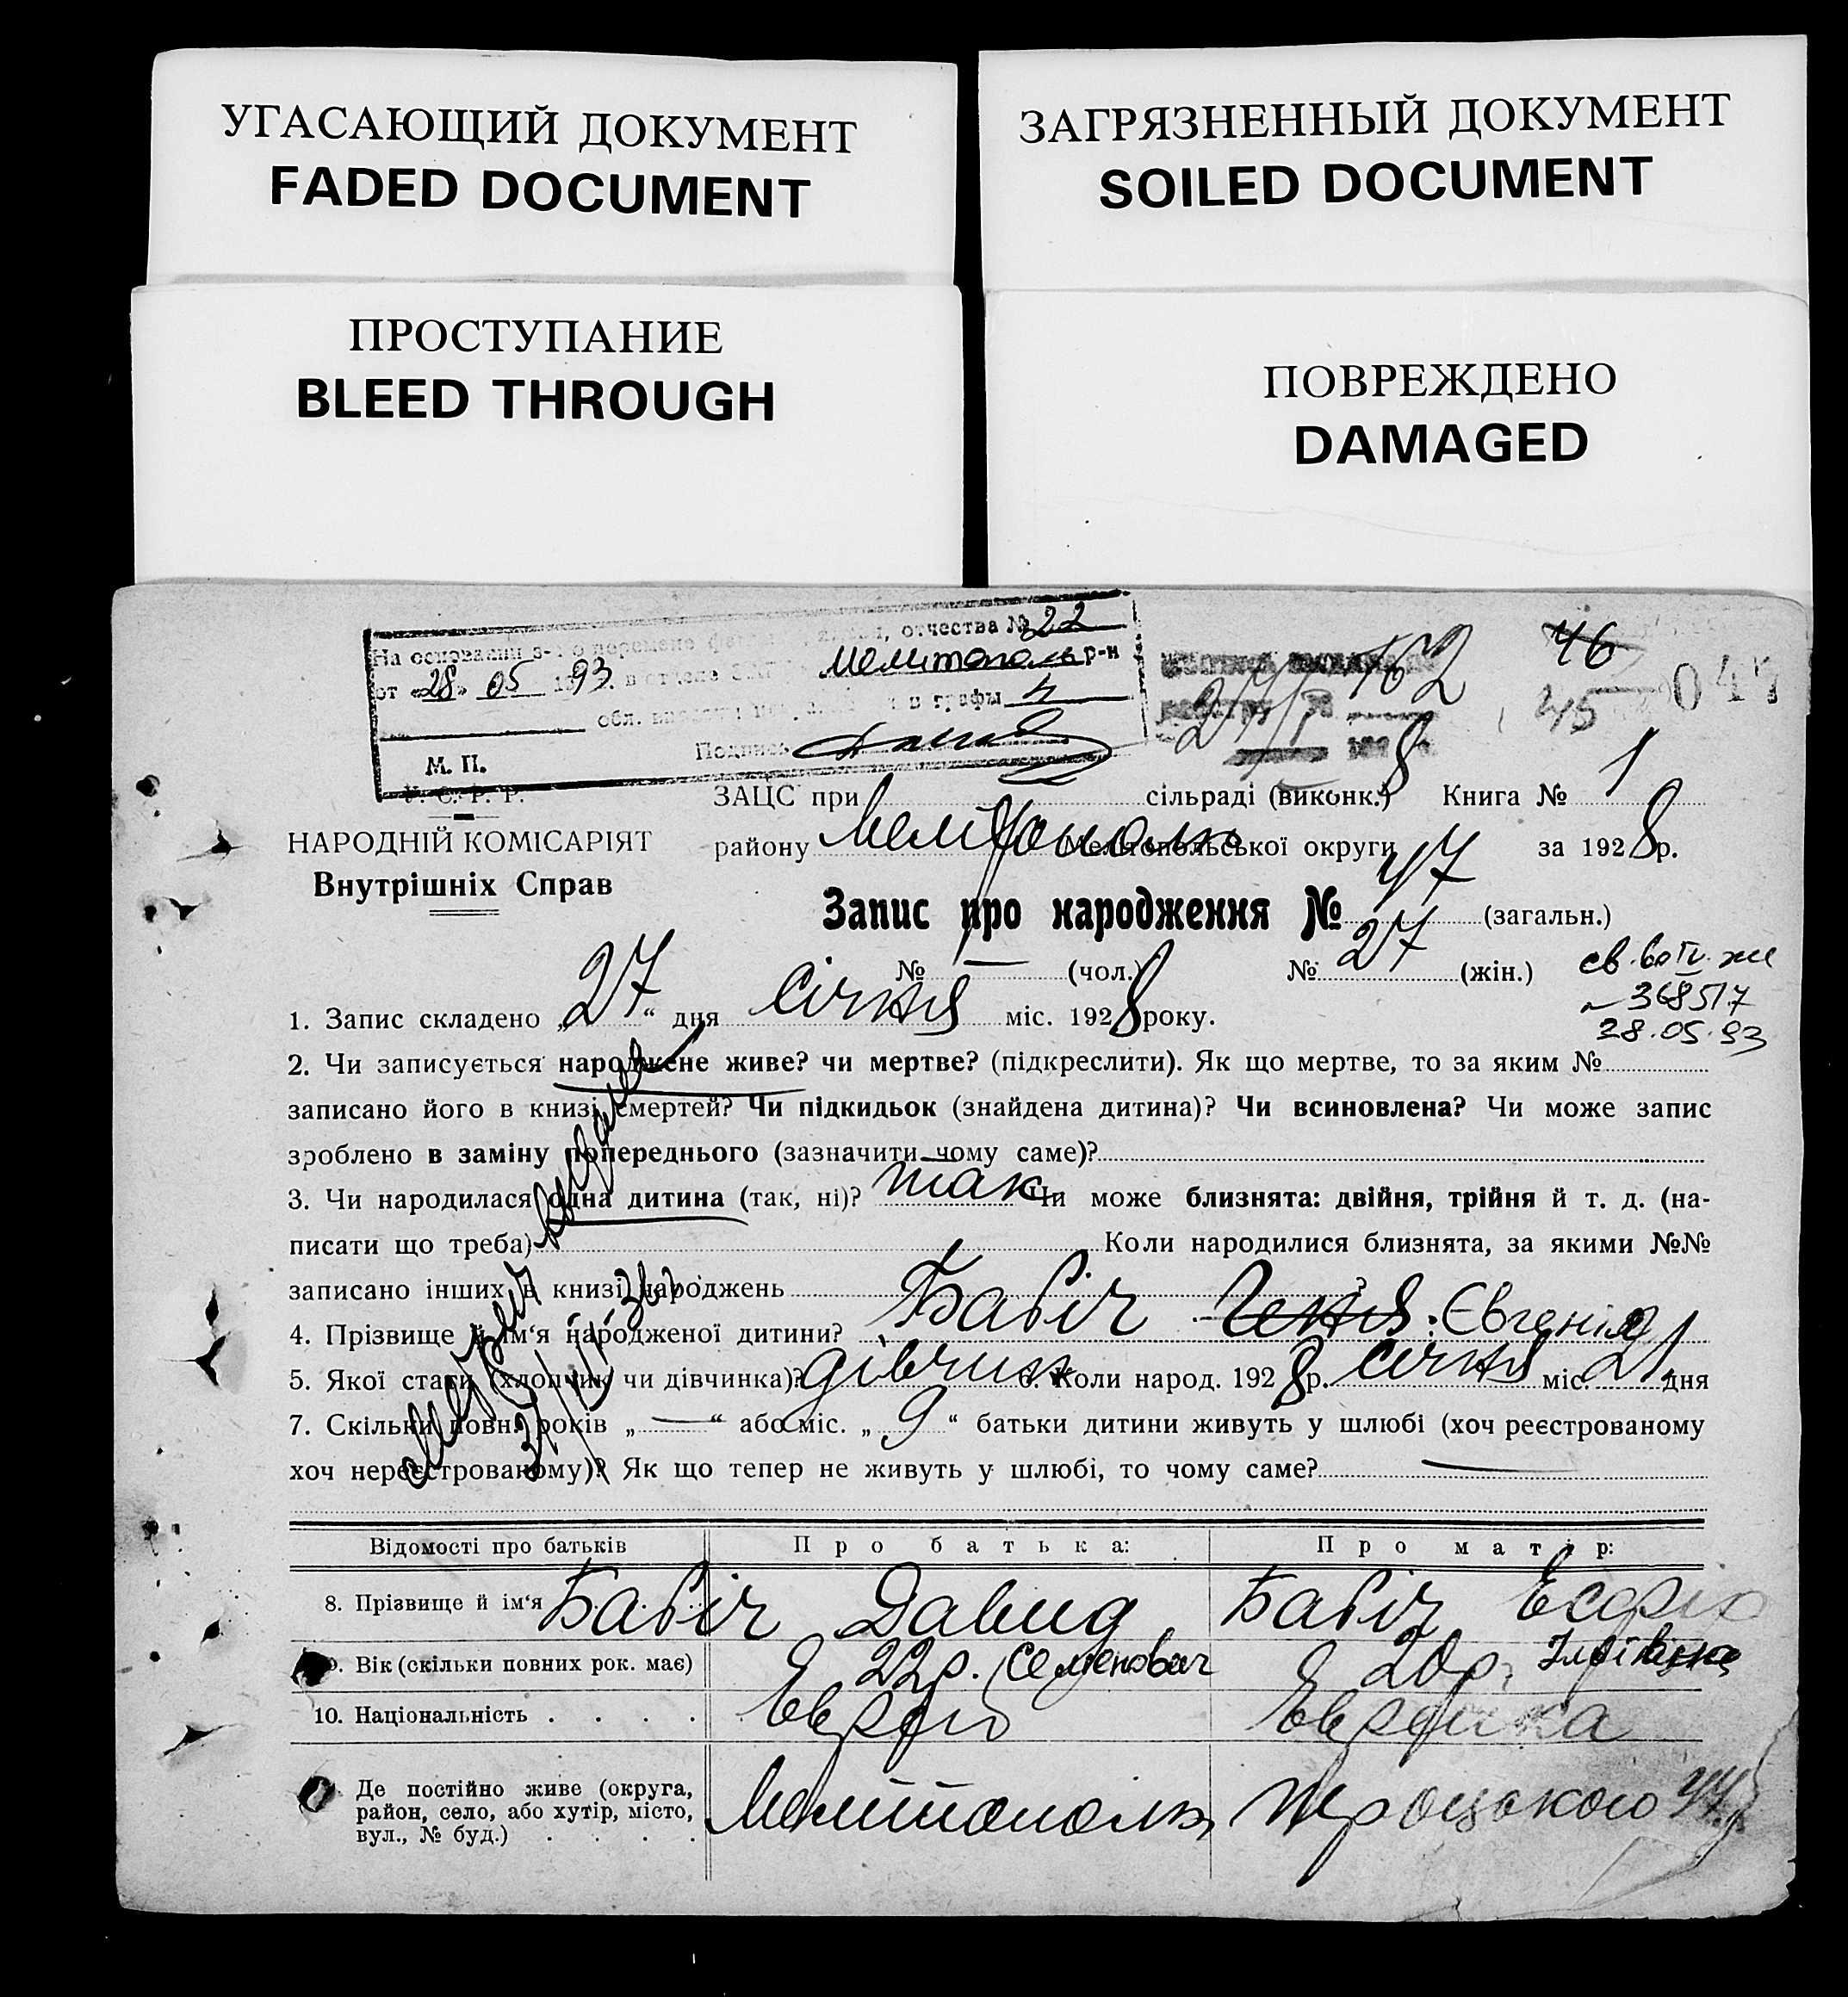 УГАСАЮЩИЙ ДОКУМЕНТ
FADED DOCUMENT
ЗАГРЯЗНЕННЫЙ ДОКУМЕНТ
SOILED DOCUMENT
ПРОСТУПАНИЕ
BLEED THROUGH
ПОВРЕЖДЕНО
DAMAGED
На основании з- о перемене отчества № 22
от «28» 05 1993. в отделе Мелитополь р-н
обл. в графы 4
Подпись
М. П.
162
46
45
047
27/I 8
У. С. Р. Р.
НАРОДНІЙ КОМІСАРІЯТ
Внутрішніх Справ
ЗАЦС при сільраді (виконк.) Книга № 1
району Мелітополь Мелітопольської округи за 1928р.
Запис про народження № 47 (загальн.)
№ — (чол.) № 27 (жін.)
св.
368517
28.05.93
1. Запис складено „27“ дня січня міс. 1928 року.
2. Чи записується народжене живе? чи мертве? (підкреслити). Як що мертве, то за яким №
записано його в книзі смертей? Чи підкидьок (знайдена дитина)? Чи всиновлена? Чи може запис
зроблено в заміну попереднього (зазначити чому саме)?
3. Чи народилася одна дитина (так, ні)? так Чи може близнята: двійня, трійня й т. д. (на-
писати що треба) Коли народилися близнята, за якими №№
записано інших в книзі народжень ?
4. Прізвище й ім‘я народженої дитини? Бабіч Геня: Євгенія
5. Якої стати (хлопчик чи дівчинка)? дівчина 6. Коли народ. 1928р. січня міс. 21 дня
7. Скільки повн. років „—“ або міс. „9“ батьки дитини живуть у шлюбі (хоч реєстрованому
хоч нереєстрованому)? Як що тепер не живуть у шлюбі, то чому саме? —
Відомості про батьків Про батька: Про матір:
8. Прізвище й ім‘я Бабіч Давид Бабіч
9. Вік (скільки повних рок. має) 22р. Семенович 20р.
10. Національність . . . . Еврей Еврейка
Де постійно живе (округа,
район, село, або хутір, місто,
вул., № буд.) . . . . Мелітополь, Троцького 44